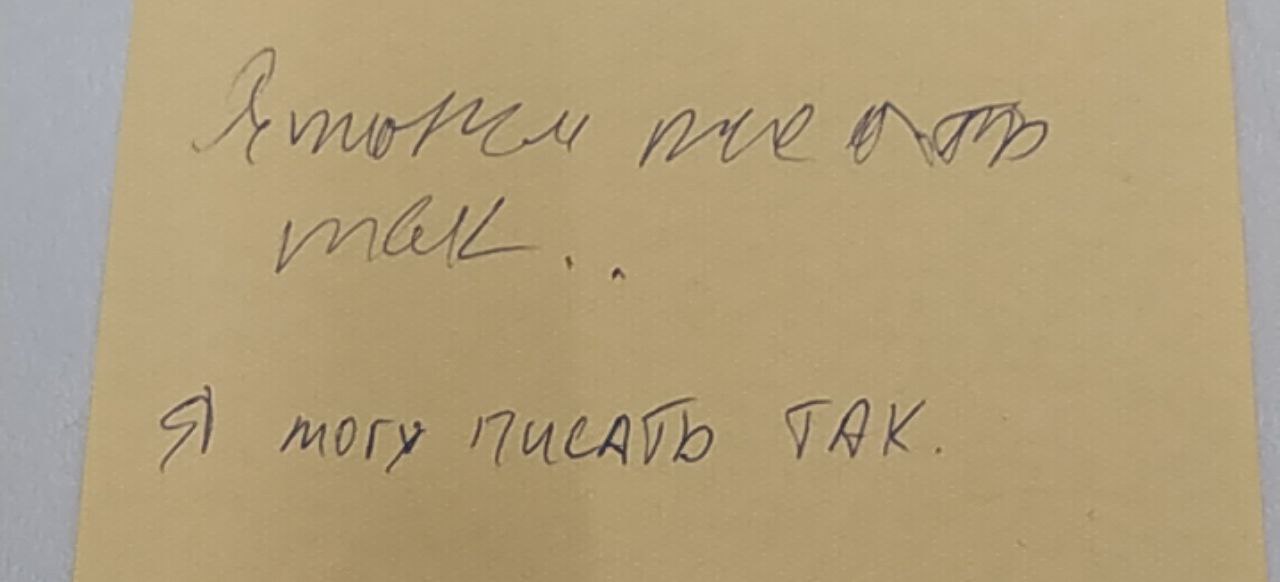 Я тоже писать
так..
Я могу писать ТАК.